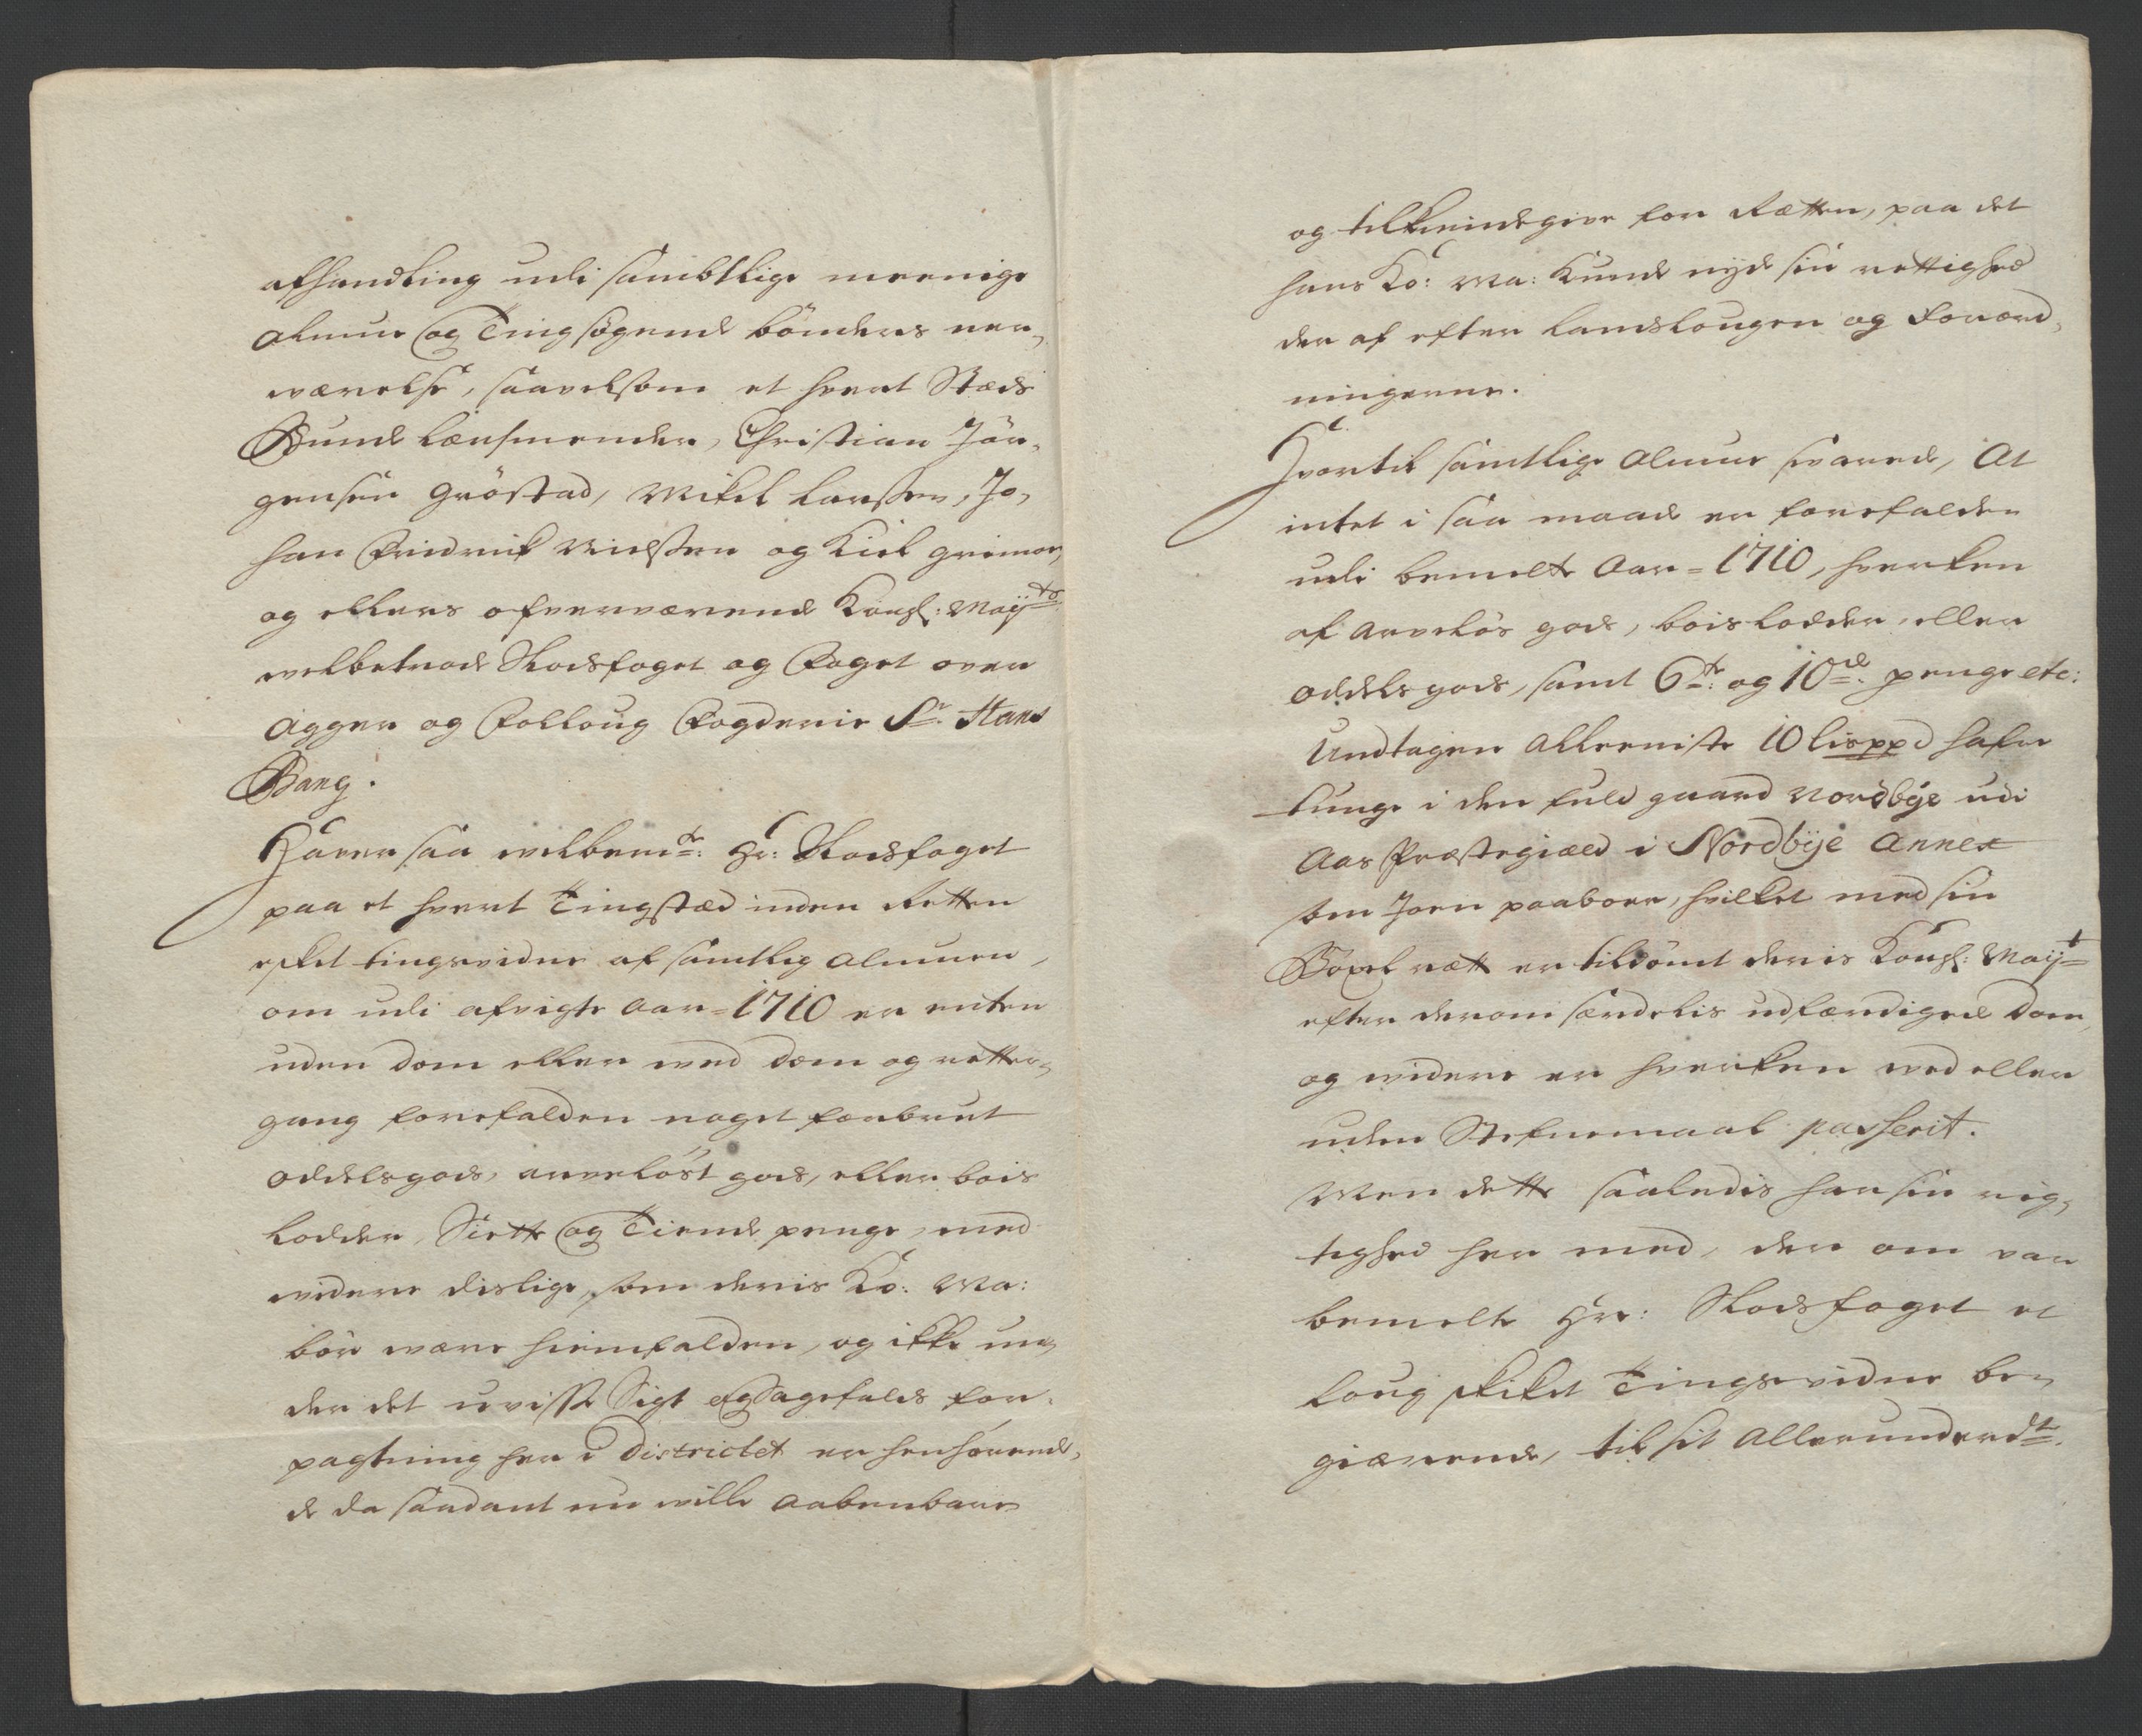 afhandling udi sambtlige meenige
Almue og Tingsøgende bönders ner¬
værelse, saavelsom et hvert Stæds
Bunde Lænsmender, Christian Jör¬
gensen Gröstad, Mikel Larssen, Jo¬
han Fridrik Nielssen og Kiel Grimer,
og ellers ofverværende Kongl: Mayts
velbetrode Slodsfoget og Foget over
Agger og Folloug Fogderie Sr. Hans
Bang.
Harer saa velbemte: Hr: Slodsfoget
paa et hvert Tingstæd inden Retten
esket tingsvidne af samtlig Almuen,
om udi afvigte Aar = 1710 er enten
uden dom eller med dom og retter¬
gang forefalden noget forbrut
Oddelsgods, arveløst gods, eller bois
Lodder, Siette og Tiende penge, med
videre dislige, som deris Ko: Ma:
bör være hiemfalden, og ikke un¬
der det uvisse Sigt og Sagefalds for¬
pagtning her i Districtet er henhørend¬
de da saadant nu ville aabenbare
og tilkiendegive for Rætten, paa det
hans Ko: Ma: kunde nyde sin rettighed
der af efter Landslougen og Forord¬
ningerne.
Hvortil samtlige Almue svarede, At
intet i saa maade er forefalden
udi bemelte Aar = 1710, hverken
af Arveløs gods, bois Lodder, eller
Oddels gods, samt 6te: og 10de: penge etc:
Undtagen Alleeniste 10 lispd hafre
tunge i den fuld gaard Nordbye udi
Aas Præstegiæld i Nordbye Annex
som Joen paaboer, hvilket med sin
Böxel rætt er tildömt deris Kongl: Mayt
efter derom særdelis udfærdigede Dom,
og videre er hverken ved eller
uden Stefnemaal passerit.
Men dette saaledis har sin rig¬
tighed her med, der om var
bemelte Hr: Slodsfoget et
loug skiket Tingsvidne be¬
giærende, til sit Allerunderdte.